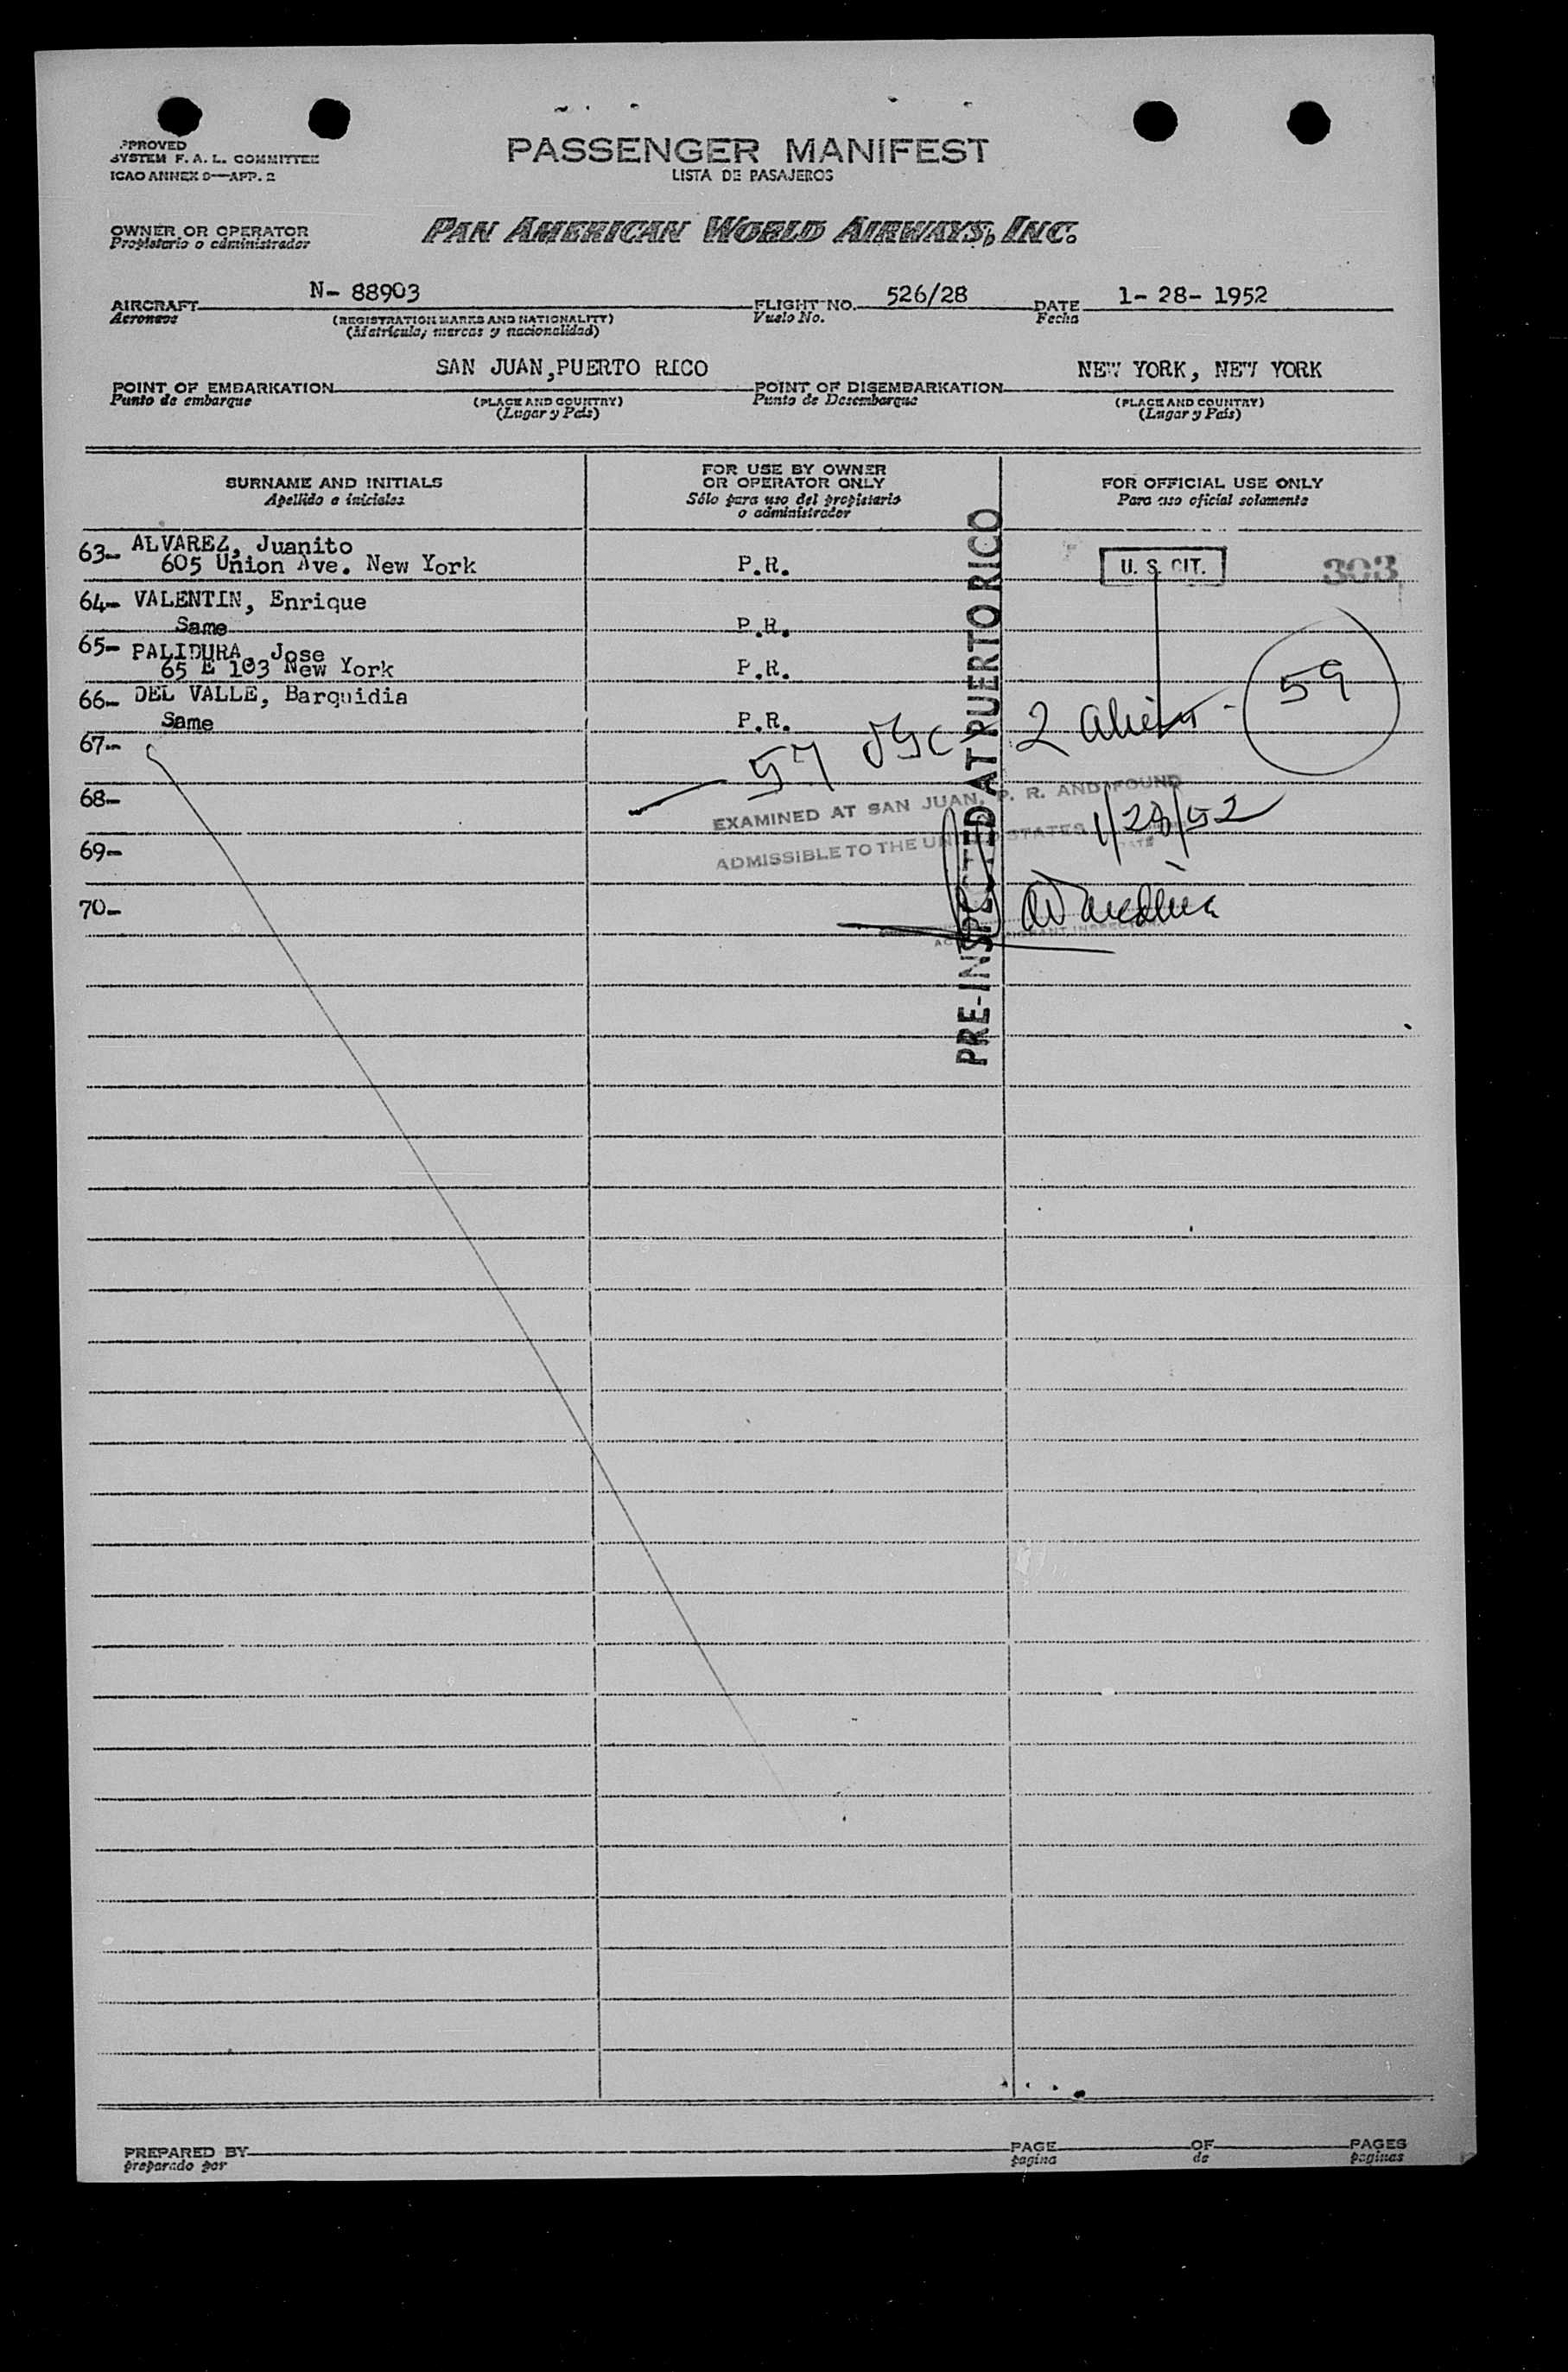 PPROVED
SYSTEM F. A. L. COMMITTEE
ICAO ANNEX 9—APP. 2
PASSENGER MANIFEST
LISTA DE PASAJEROS
OWNER OR OPERATOR
Propietario o administrador
PAN AMERICAN WORLD AIRWAYS, INC.
AIRCRAFT N- 88903 FLIGHT NO. 526/28 DATE 1- 28- 1952
Aeronave (REGISTRATION MARKS AND NATIONALITY) Vuelo No. Fecha
(Matrícula, marcas y nacionalidad)
POINT OF EMBARKATION SAN JUAN,PUERTO RICO POINT OF DISEMBARKATION NEW YORK, NEW YORK
Punto de embarque (PLACE AND COUNTRY) Punto de Desembarque (PLACE AND COUNTRY)
(Lugar y País) (Lugar y País)
SURNAME AND INITIALS
Apellido e iniciales
FOR USE BY OWNER
OR OPERATOR ONLY
Sólo para uso del propietario
o administrador
FOR OFFICIAL USE ONLY
Para uso oficial solamente
63- ALVAREZ, Juanito
605 Union Ave. New York P.R. U. S. CIT. 303
64- VALENTIN, Enrique
Same P.R.
65- PALIDURA, Jose
65 E 103 New York P.R.
66- DEL VALLE, Barquidia
Same P.R.
67-
57 2 alien 59
68-
EXAMINED AT SAN JUAN, P. R. AND FOUND
1/28/52
69-
ADMISSIBLE TO THE UNITED STATES
DATE
70-
IMMIGRANT INSPECTOR
PRE-INSPECTED AT PUERTO RICO
PREPARED BY PAGE OF PAGES
preparado por pagina de paginas